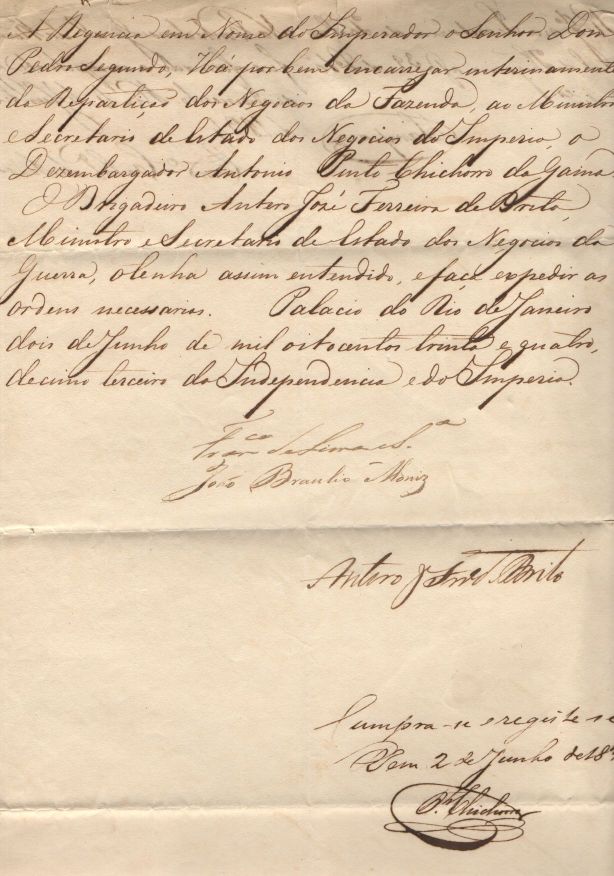 A Regencia em Nome do Imperador o Senhor Dom
Pedro Segundo, Há por bem Encarregar interinamente
da Repartição dos Negocios da Fazenda, ao Ministro
e Secretario de Estado dos Negocios do Imperio, o
Dezembargador Antonio Pinto Chichorro da Gama.
O Brigadeiro Antero José Ferreira de Brito,
Ministro e Secretario de Estado dos Negocios da
Guerra, o tenha assim entendido, e faça expedir as
ordens necessarias. Palacio do Rio de Janeiro
dois de Junho de mil oitocentos trinta e quatro,
decimo terceiro da Independencia e do Imperio.
Franco de Lima e Sa
João Braulio Moniz
Antero J Ferra d Brito
Cumpra-se e registe-se
em 2 de Junho de 183
Chichorro